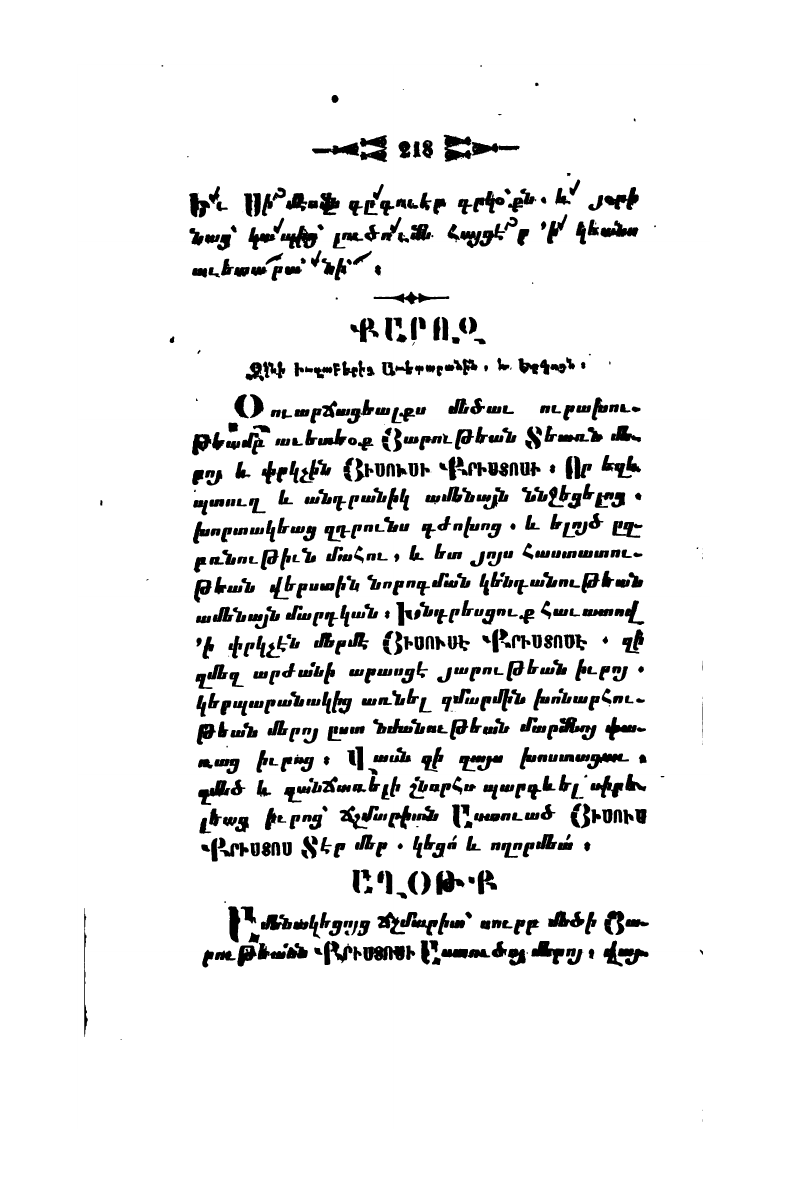 218
Եւ Սիմէոն գըգուէր գրկօքն. և յօրի
նաց կապից լուծումն Հայցէր 'ի կեանս
աւետարանի :
ՔԱՐՈԶ
Զկնի Իւղաբերից Աւետարանին, և Երգոյն :
Օուարճացեալքս մեծաւ ուրախու֊
թեամբ աւետեօք Յարութեան Տեառն մե֊
րոյ և փրկչին ՅԻՍՈՒՍԻ ՔՐԻՍՏՈՍԻ : Որ եղև
պտուղ և անդրանիկ ամենայն ննջեցելոց .
խորտակեաց զդրունս դժոխոց . և ելոյծ ըզ֊
բռնութիւն մահու, և ետ յոյս հաստատու֊
թեան վերստին նորոգման կենդանութեան
ամենայն մարդկան : Խնդրեսցուք հաւատով
'ի փրկչէն մերմէ ՅԻՍՈՒՍԷ ՔՐԻՍՏՈՍԷ . զի
զմեզ արժանի արասցէ յարութեան իւրոյ .
կերպարանակից առնել զմարմին խոնարհու֊
թեան մերոյ ըստ նմանութեան մարմնոյ փա֊
ռաց իւրոց : Վասն զի զայս խոստացաւ :
զմեծ և զանճառելի շնորհս պարգևել սիրե֊
լեաց իւրոց՝ ճշմարիտն Աստուած ՅԻՍՈՒՍ
ՔՐԻՍՏՈՍ Տէր մեր . կեցո՛ և ողորմեա՛ :
ԱՂՕԹՔ
Ամենակեցոյց ճշմարիտ՝ սուրբ մեծի Յա֊
րութեանն ՔՐԻՍՏՈՍԻ Աստուծոյ մերոյ : վայ֊